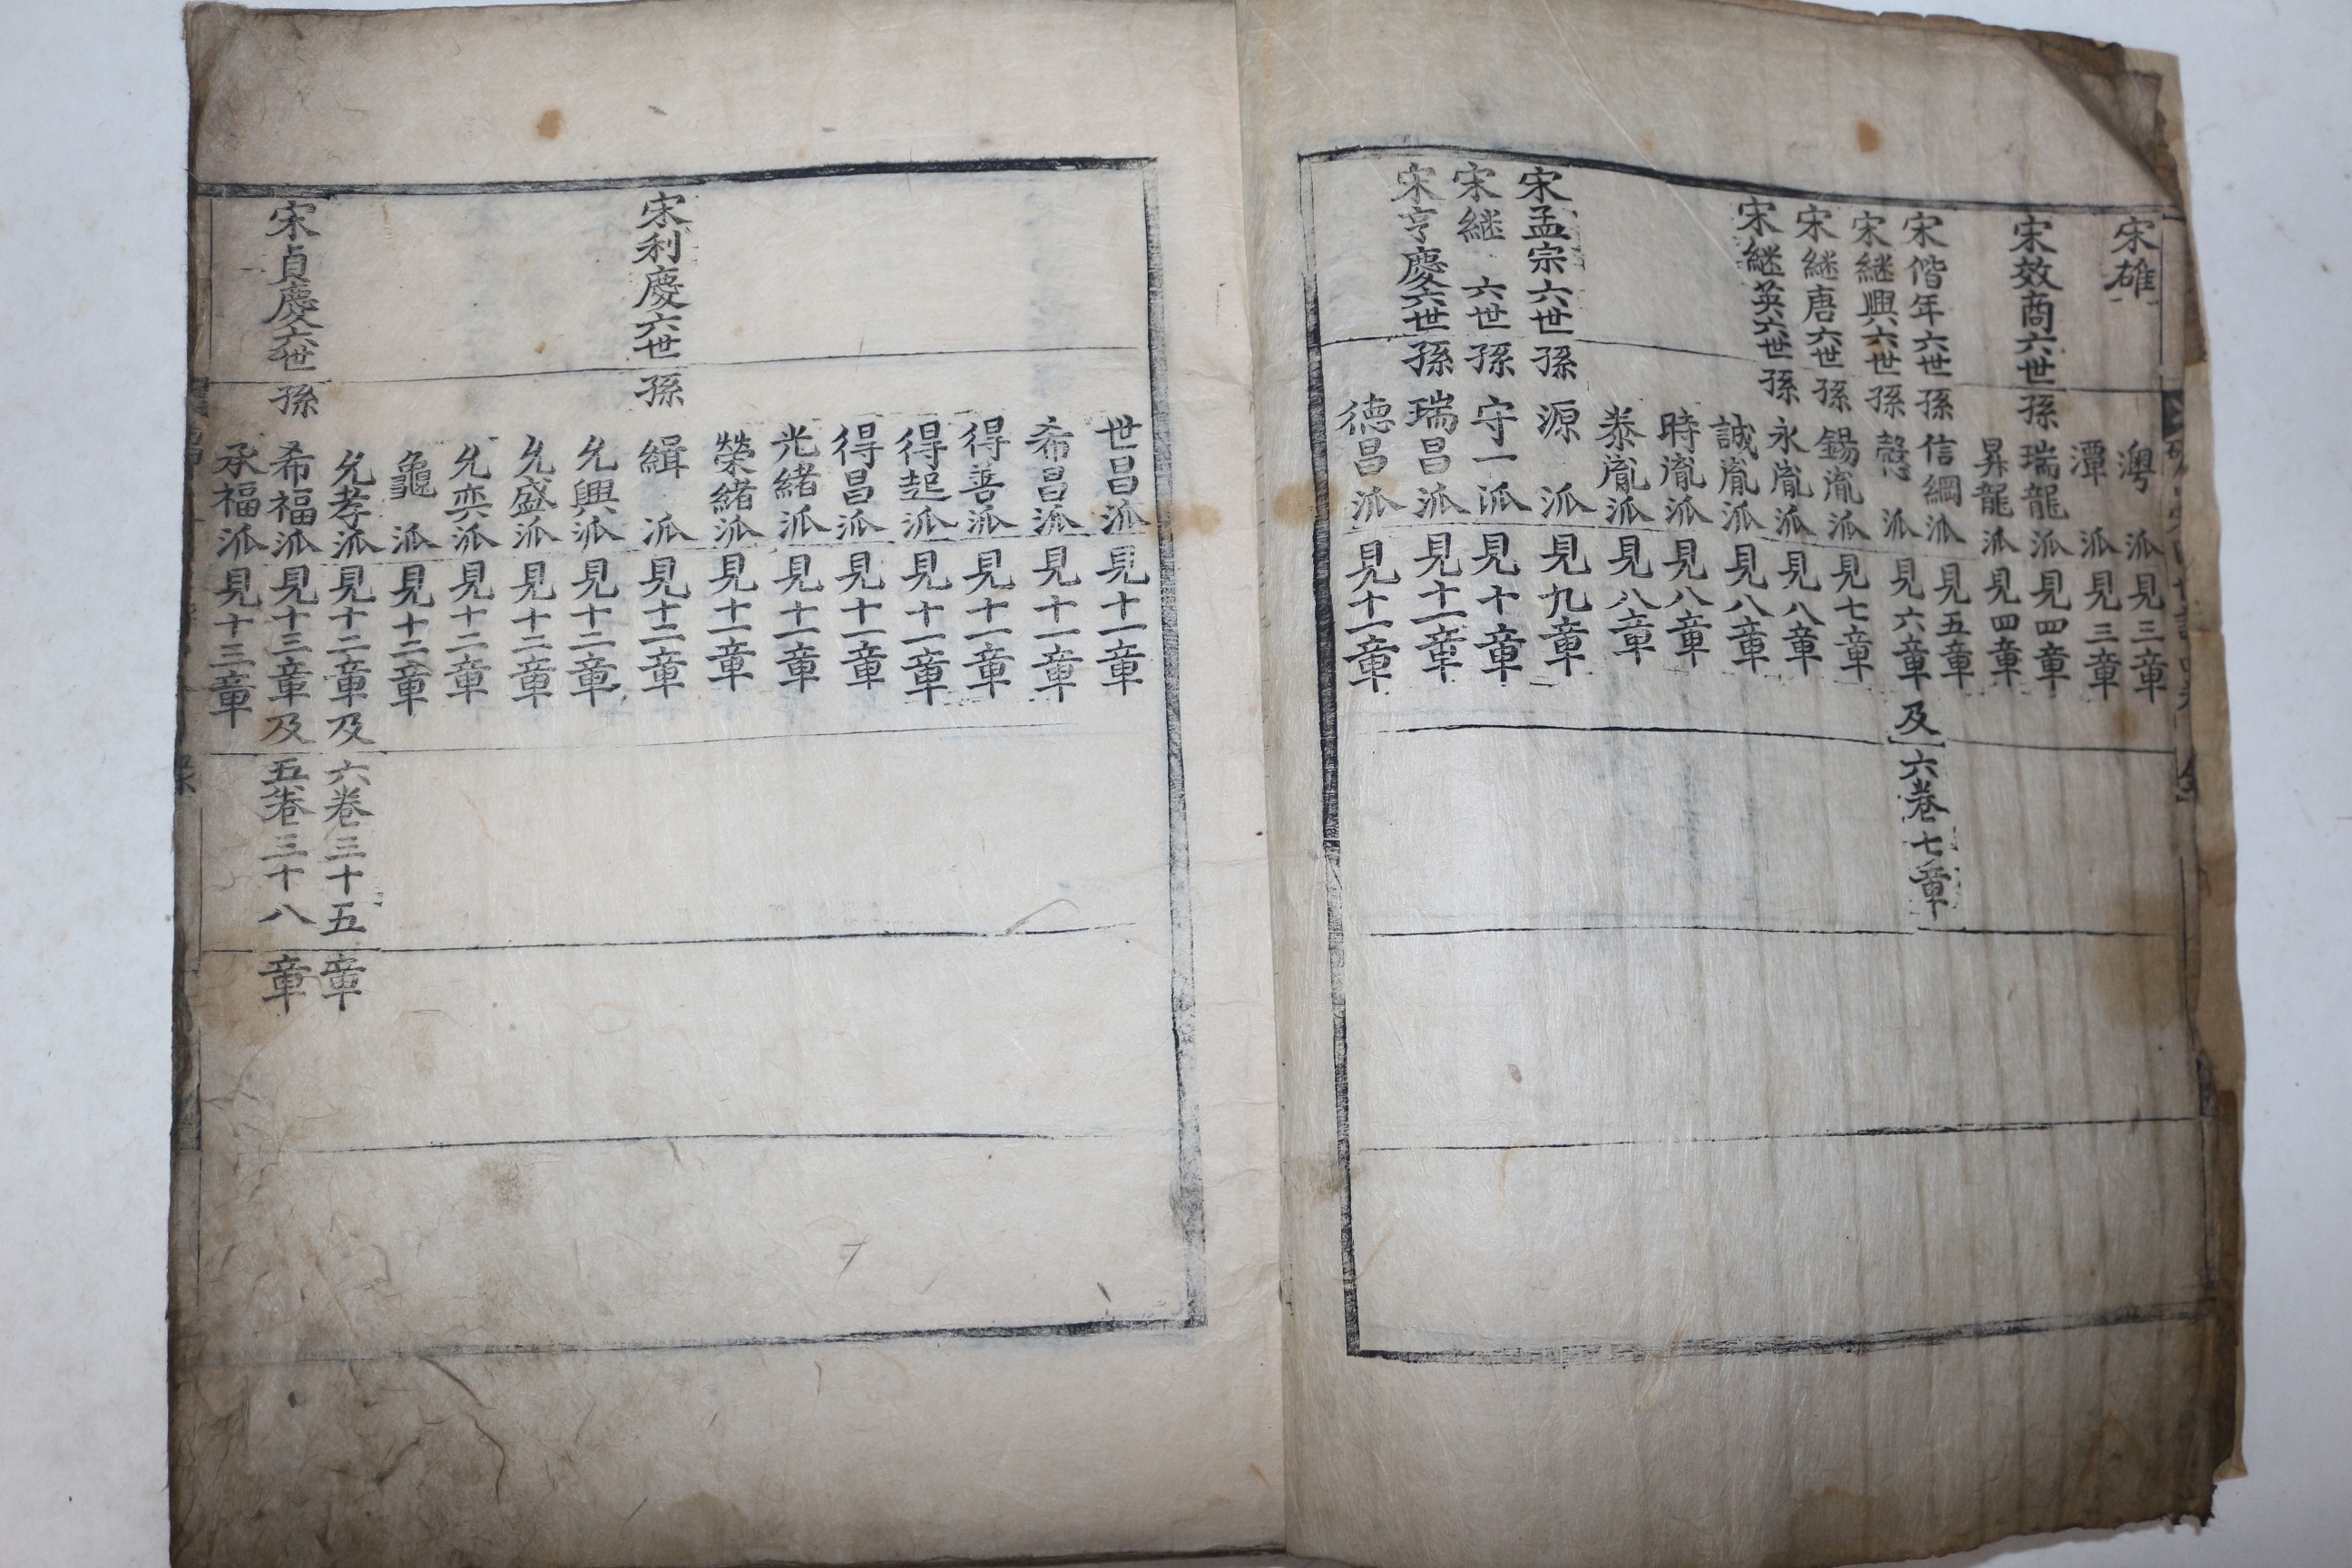 宋雄 澳 派 見三章
潭 派 見三章
宋效商六世孫 瑞龍派 見四章
昇龍派 見四章
宋偕年六世孫 信綱派 見五章
宋継興六世孫 慤 派 見六章 及六卷七章
宋継唐六世孫 錫胤派 見七章
宋継英六世孫 永胤派 見八章
誠胤派 見八章
時胤派 見八章
泰胤派 見八章
宋孟宗六世孫 源 派 見九章
宋継 六世孫 守一派 見十章
宋亨慶六世孫 瑞昌派 見十一章
德昌派 見十一章
世昌派 見十一章
希昌派 見十一章
得善派 見十一章
得起派 見十一章
得昌派 見十一章
光緒派 見十一章
榮緒派 見十一章
宋利慶六世孫 緝 派 見十二章
允興派 見十二章
允盛派 見十二章
允奕派 見十二章
龜 派 見十二章
允孝派 見十二章及六卷三十五章
宋貞慶六世孫 希福派 見十三章及五卷三十八章
承福派 見十三章